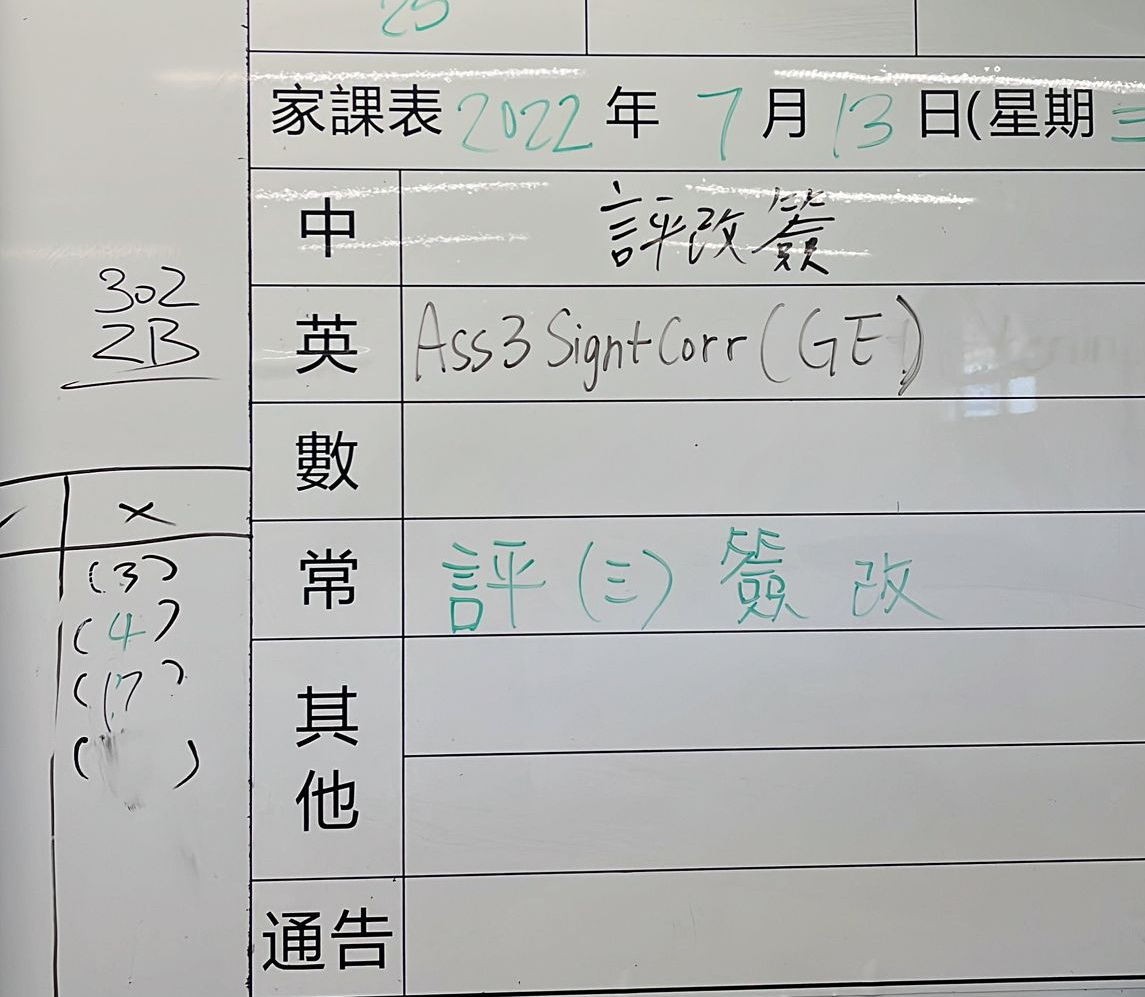 25
家課表 2022 年 7 月 13 日(星期 三
中 評改簽
英 Ass3 Sign+Corr (GE)
數
常 評 (三) 簽 改
其他
通告
302
2B
✓ ×
(3)
(4)
(17)
( )